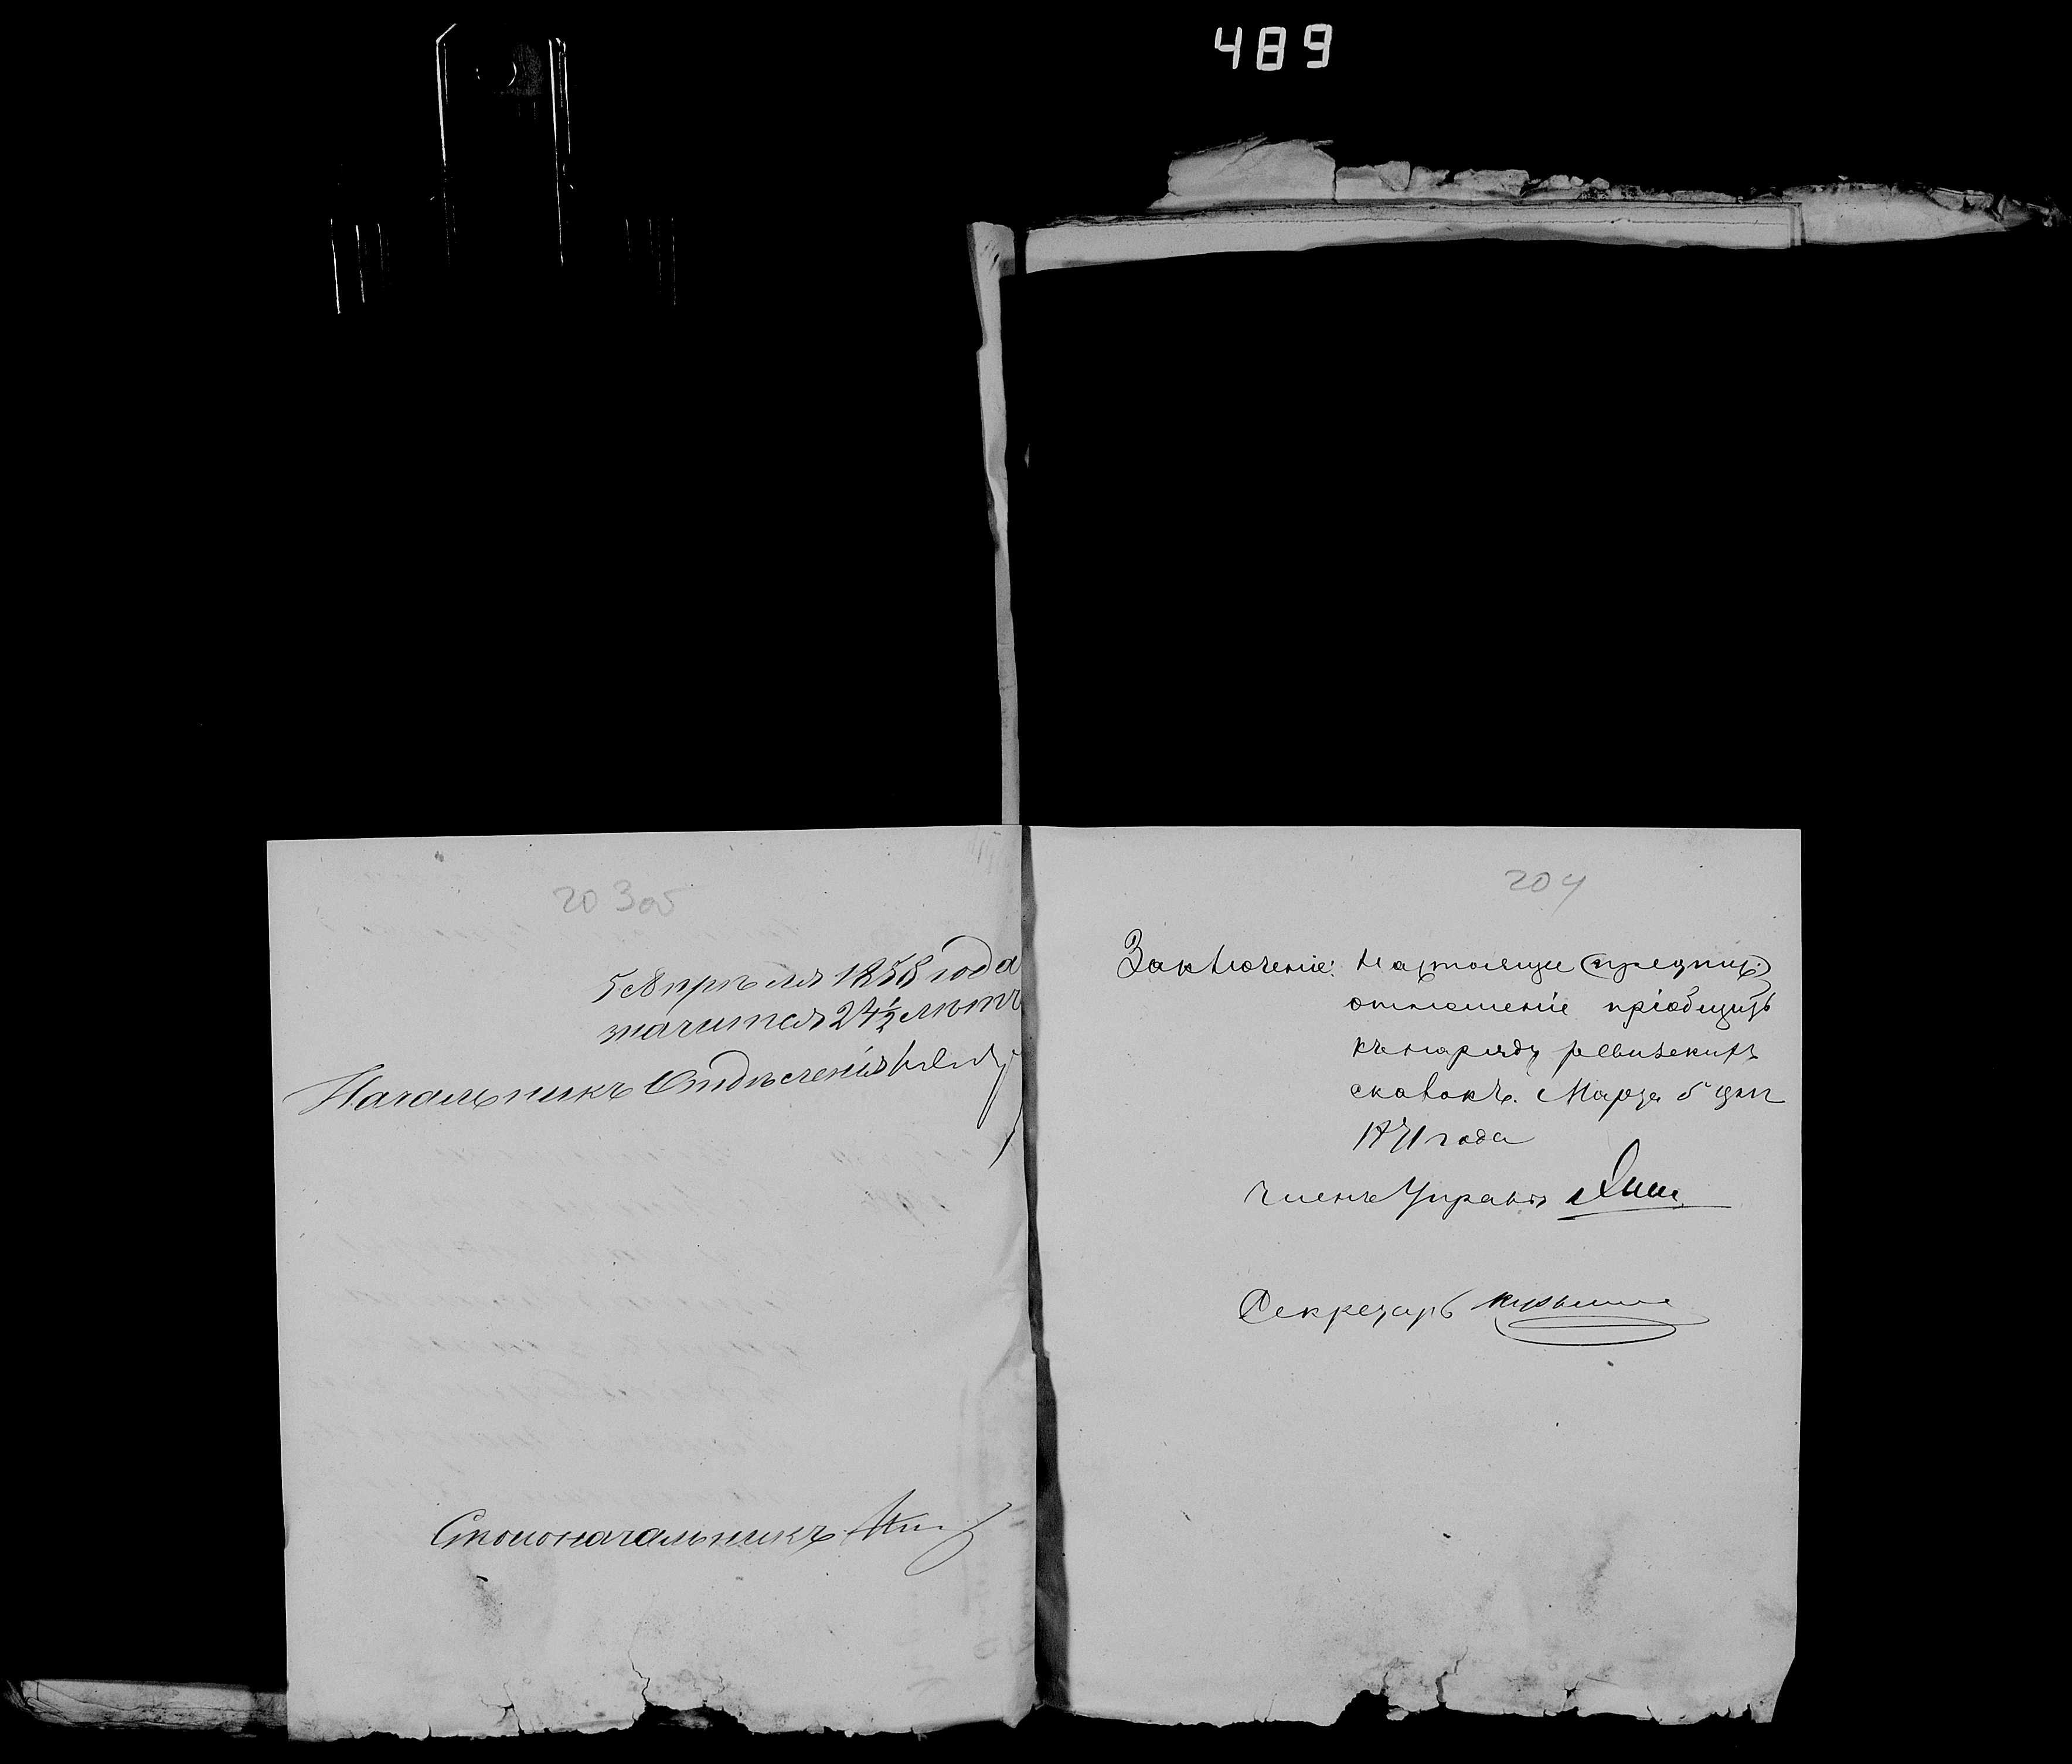 489
203об
5 Апрѣля 1858 года
значится 24½ лѣтъ
Начальникъ Отдѣленія
Столоначальникъ
204
Заключеніе: Настоящее (предпис.)
отношеніе пріобщить
къ наряду ревизскихъ
сказокъ. Марта 5 дня
1871 года
Членъ Управы
Секретарь Кузьминъ